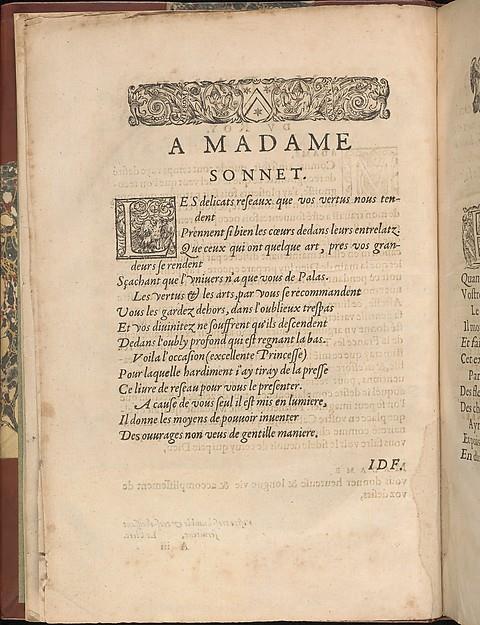 A MADAME
SONNET.
LES delicats reseaux que vos vertus nous ten-
dent
Prennent si bien les cœurs dedans leurs entrelatz.
Que ceux qui ont quelque art, pres vos gran-
deurs se rendent
Sçachant que l'vniuers n'a que vous de Palas.
Les vertus & les arts, par vous se recommandent
Vous les gardez dehors, dans l'oublieux trespas
Et vos diuinitez ne souffrent qu'ils descendent
Dedans l'oubly profond qui est regnant la bas.
Voila l'occasion (excellente Princesse)
Pour laquelle hardiment i'ay tiray de la presse
Ce liure de reseau pour vous le presenter.
A cause de vous seul il est mis en lumiere,
Il donne les moyens de pouuoir inuenter
Des ouurages non veus de gentille maniere.
I.D.F.
Quan
Vostre
Le
Il mo
Et fai
Cet ex
Par
Des fle
Des ch
Ayn
En d